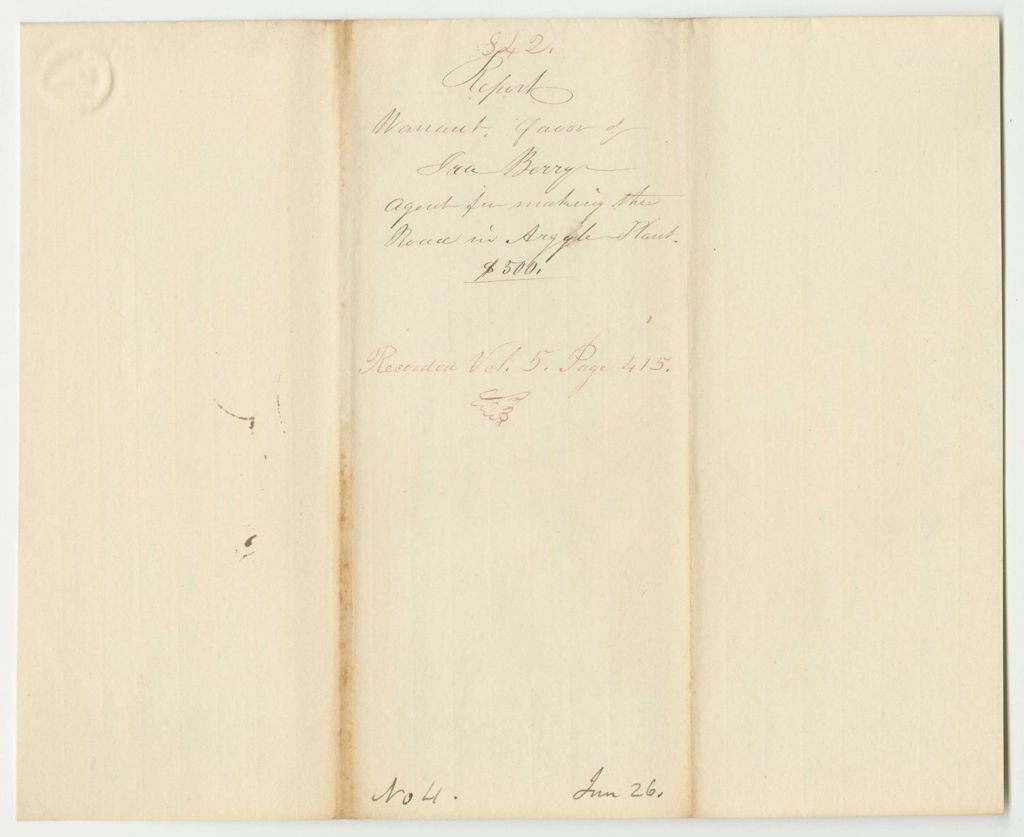 842.
Report
Warrant, favor of
Ira Berry
agent for making the
Road in Argyle Plant.
$500.
Recorded Vol. 5. Page 415.
No 4.
Jun 26.